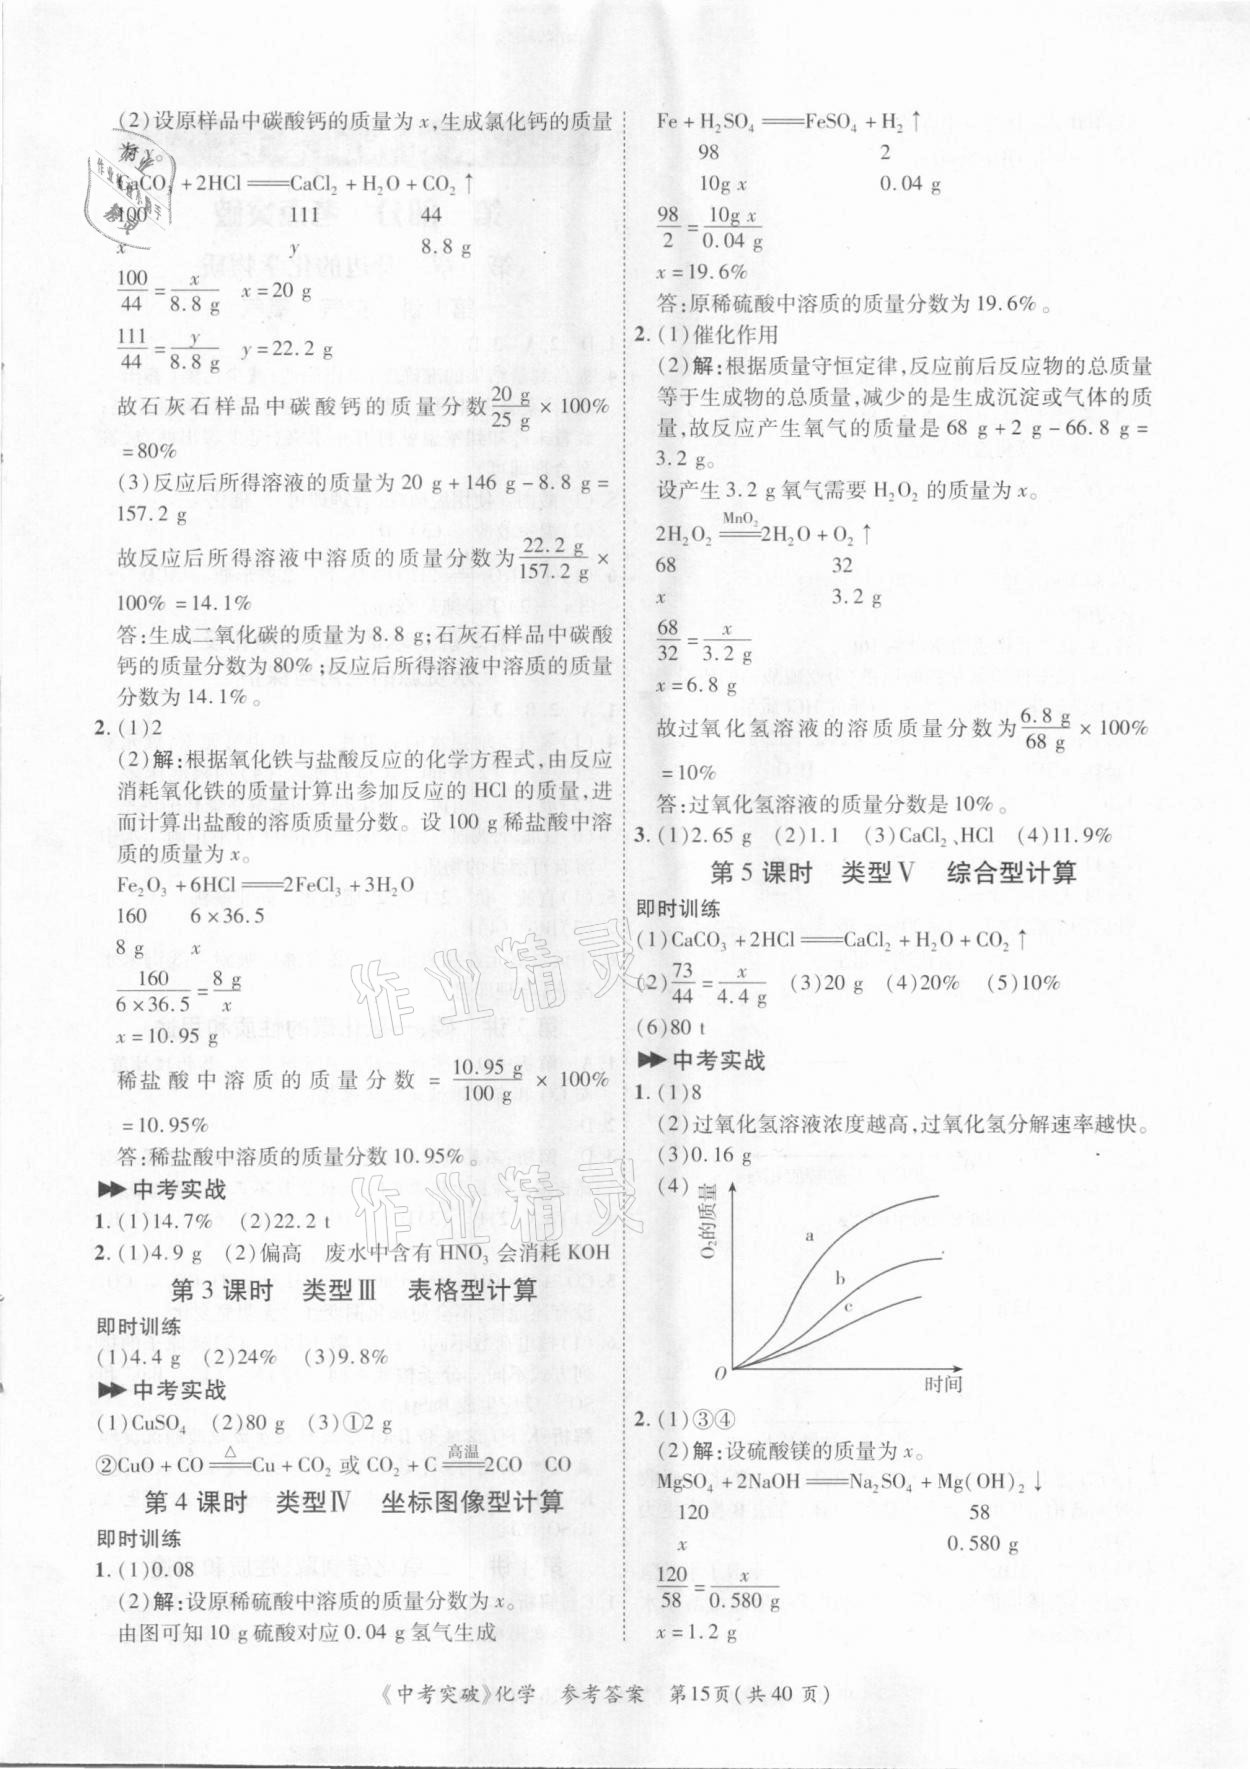 (2)设原样品中碳酸钙的质量为x,生成氯化钙的质量
为y。
CaCO₃ + 2HCl══CaCl₂ + H₂O + CO₂↑
100 111 44
x y 8.8 g
100/44 = x/8.8 g x = 20 g
111/44 = y/8.8 g y = 22.2 g
故石灰石样品中碳酸钙的质量分数 20 g/25 g × 100%
= 80%
(3)反应后所得溶液的质量为 20 g + 146 g - 8.8 g =
157.2 g
故反应后所得溶液中溶质的质量分数为 22.2 g/157.2 g ×
100% = 14.1%
答:生成二氧化碳的质量为8.8 g;石灰石样品中碳酸
钙的质量分数为80%;反应后所得溶液中溶质的质量
分数为14.1%。
2. (1)2
(2)解:根据氧化铁与盐酸反应的化学方程式,由反应
消耗氧化铁的质量计算出参加反应的 HCl 的质量,进
而计算出盐酸的溶质质量分数。设 100 g 稀盐酸中溶
质的质量为x。
Fe₂O₃ + 6HCl══2FeCl₃ + 3H₂O
160 6×36.5
8 g x
160/6×36.5 = 8 g/x
x = 10.95 g
稀盐酸中溶质的质量分数 = 10.95 g/100 g × 100%
= 10.95%
答:稀盐酸中溶质的质量分数10.95%。
中考实战
1. (1)14.7% (2)22.2 t
2. (1)4.9 g (2)偏高 废水中含有 HNO₃ 会消耗 KOH
第 3 课时 类型Ⅲ 表格型计算
即时训练
(1)4.4 g (2)24% (3)9.8%
中考实战
(1)CuSO₄ (2)80 g (3)①2 g
②CuO + CO══(△)Cu + CO₂ 或 CO₂ + C══(高温)2CO CO
第 4 课时 类型Ⅳ 坐标图像型计算
即时训练
1. (1)0.08
(2)解:设原稀硫酸中溶质的质量分数为x。
由图可知 10 g 硫酸对应 0.04 g 氢气生成
Fe + H₂SO₄══FeSO₄ + H₂↑
98 2
10g x 0.04 g
98/2 = 10g x/0.04 g
x = 19.6%
答:原稀硫酸中溶质的质量分数为19.6%。
2. (1)催化作用
(2)解:根据质量守恒定律,反应前后反应物的总质量
等于生成物的总质量,减少的是生成沉淀或气体的质
量,故反应产生氧气的质量是 68 g + 2 g - 66.8 g =
3.2 g。
设产生 3.2 g 氧气需要 H₂O₂ 的质量为x。
2H₂O₂══(MnO₂)2H₂O + O₂↑
68 32
x 3.2 g
68/32 = x/3.2 g
x = 6.8 g
故过氧化氢溶液的溶质质量分数为 6.8 g/68 g × 100%
= 10%
答:过氧化氢溶液的质量分数是10%。
3. (1)2.65 g (2)1.1 (3)CaCl₂、HCl (4)11.9%
第 5 课时 类型Ⅴ 综合型计算
即时训练
(1)CaCO₃ + 2HCl══CaCl₂ + H₂O + CO₂↑
(2)73/44 = x/4.4 g (3)20 g (4)20% (5)10%
(6)80 t
中考实战
1. (1)8
(2)过氧化氢溶液浓度越高,过氧化氢分解速率越快。
(3)0.16 g
(4)
O₂的质量
a
b
c
O
时间
2. (1)③④
(2)解:设硫酸镁的质量为x。
MgSO₄ + 2NaOH══Na₂SO₄ + Mg(OH)₂↓
120 58
x 0.580 g
120/58 = x/0.580 g
x = 1.2 g
《中考突破》化学 参考答案 第15页(共40页)
作业精灵
作业精灵